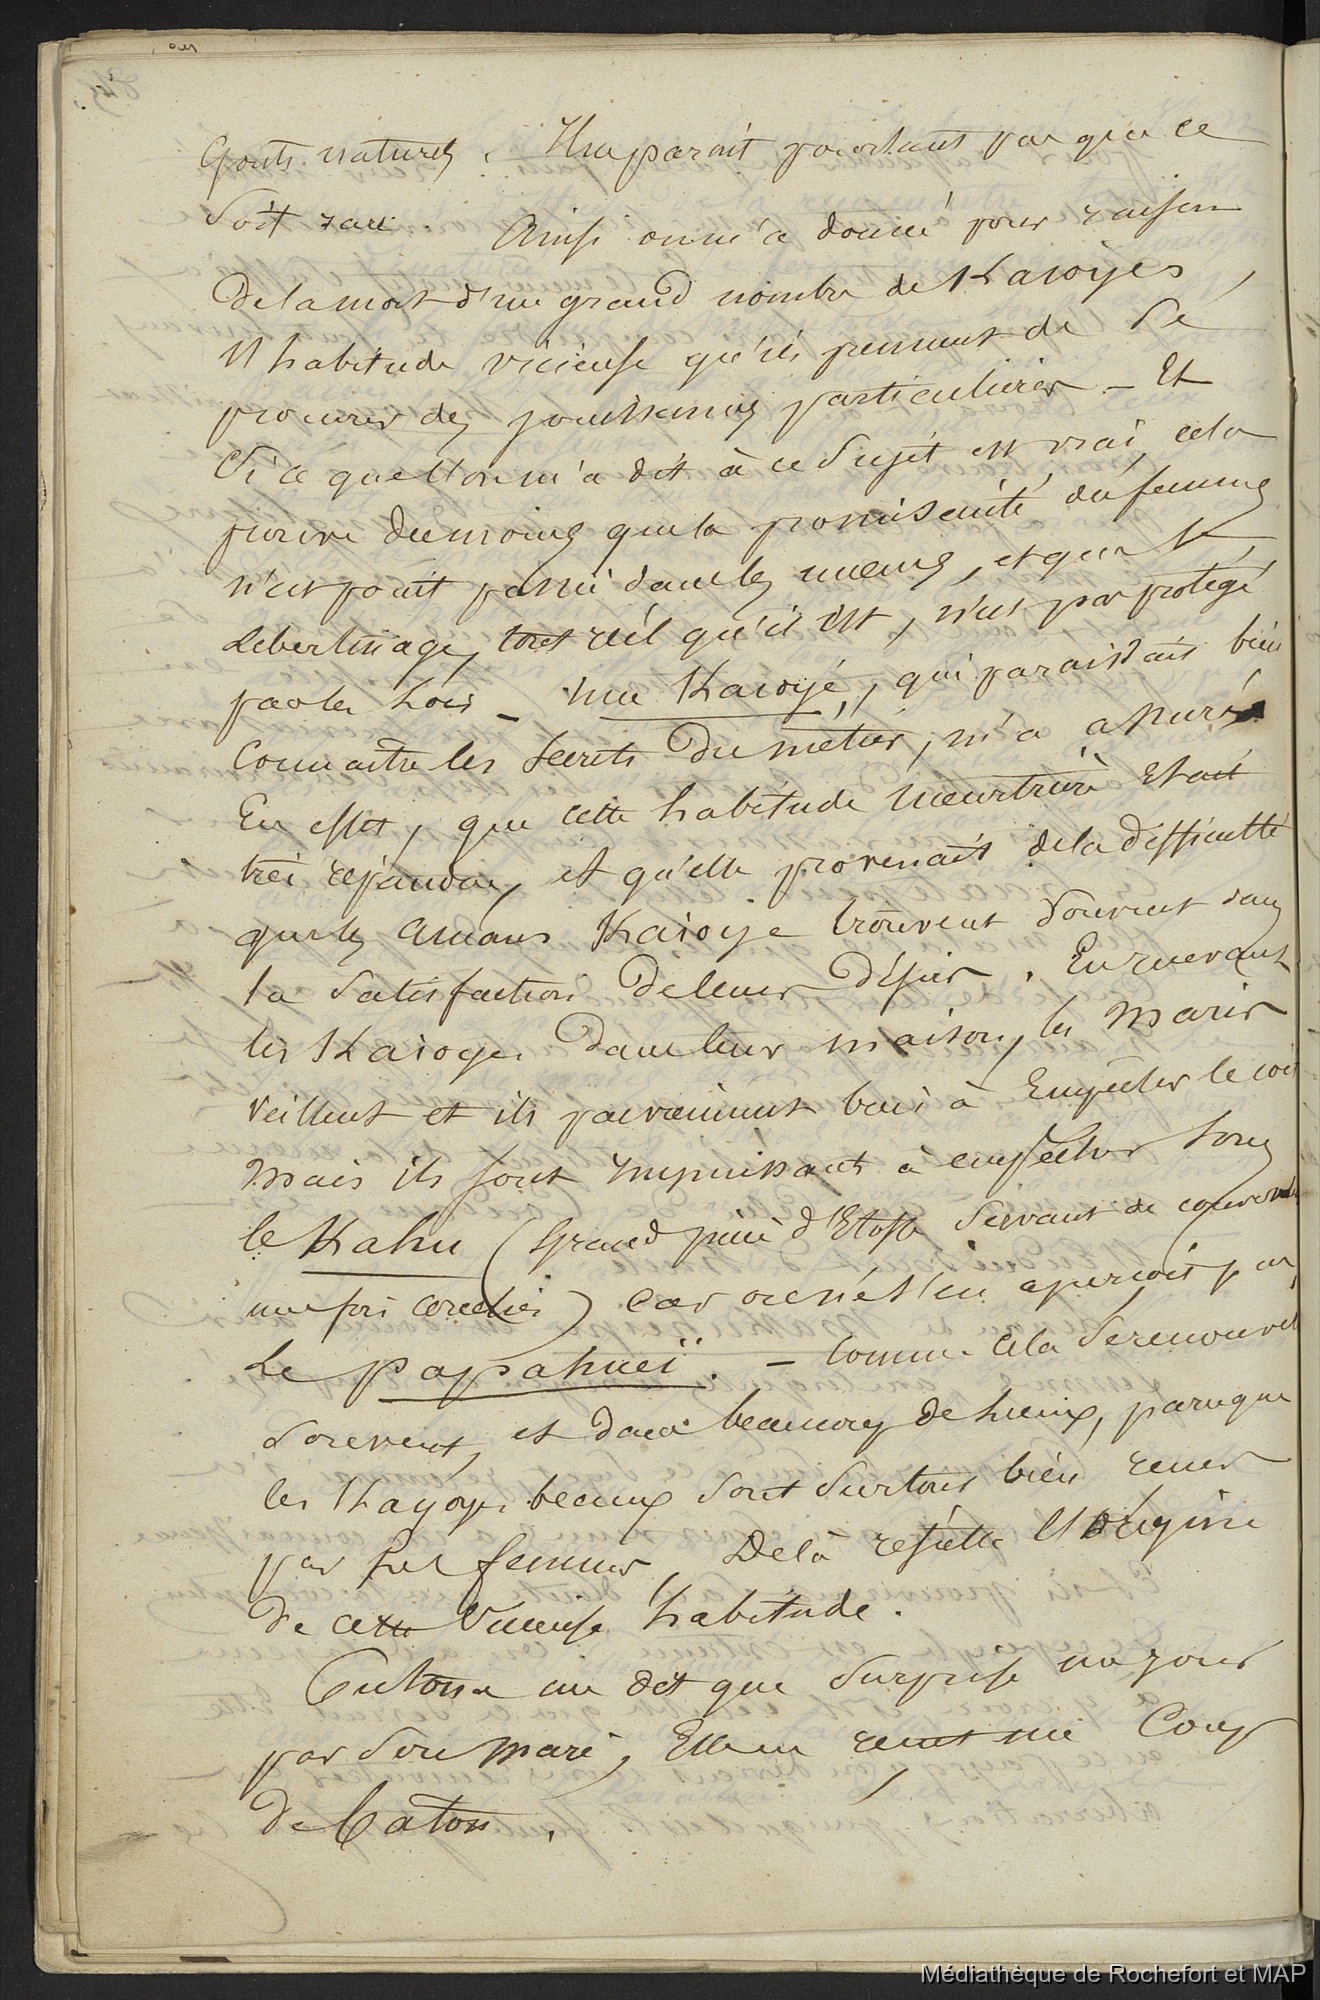 Gouts naturels. Il ne parait pourtant pas que ce
soit rare. Ainsi on m'a donné pour raison
de la mort d'un grand nombre de Kaioyes,
l'habitude vicieuse qu'ils prennent de se
procurer des jouissances particulieres - Et
si ce que l'on m'a dit à ce sujet est vrai, cela
prouve du moins que la promiscuité des femmes
n'est point passée dans les moeurs, et que le
libertinage, tout réel qu'il est, n'est pas protégé
par les lois - Un Kaioyé, qui paraissait bien
connaitre les secrets du métier, m'a assuré
En effet, que cette habitude meurtrière était
très répandue, et qu'elle provenait de la difficulté
que les amans Kaioye trouvent souvent dans
la satisfaction de leurs désirs. En recevant
les Kaioyes dans leur maison, les maris
veillent et ils parviennent bien à Empêcher le coït
mais ils sont impuissants à empêcher sous
le Kahu (Grand pièce d'Etoffe servant de couverture
une fois couchés) car on ne s'en aperçoit pas,
Le papahueï. - Comme cela se renouvelle
souvent, et dans beaucoup de lieux, parceque
les Kayoyes beaux sont surtout bien reçus
par les femmes, De là résulte l'origine
de cette vicieuse habitude.
me dit que surprise un jour
par son mari, Elle en reçut un Coup
de Baton.
Médiathèque de Rochefort et MAP